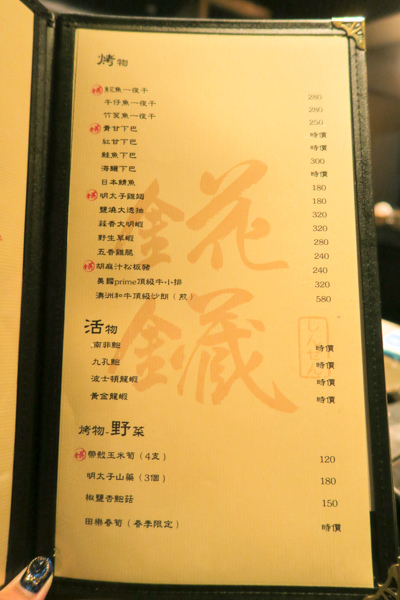 烤物
魷魚一夜干 280
午仔魚一夜干 280
竹筴魚一夜干 250
青甘下巴 時價
紅甘下巴 時價
鮭魚下巴 300
海鱺下巴 時價
日本鯖魚 180
明太子雞翅 180
鹽燒大透抽 320
蒜香大明蝦 320
野生草蝦 280
五香雞腿 240
胡麻汁松板豬 240
美國prime頂級牛小排 320
澳洲和牛頂級沙朗（煎） 580
活物
南非鮑 時價
九孔鮑 時價
波士頓龍蝦 時價
黃金龍蝦 時價
烤物-野菜
帶殼玉米筍（4支） 120
明太子山藥（3個） 180
椒鹽杏鮑菇 150
田樂春筍（春季限定） 時價